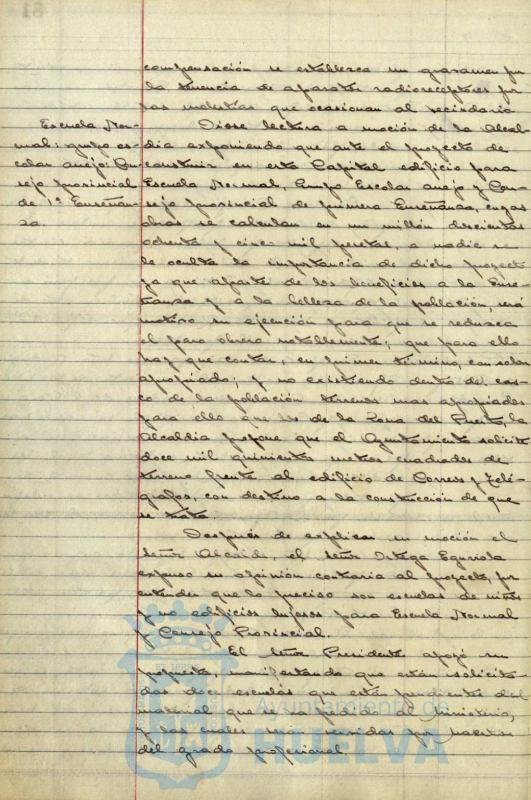 compensación se establezca un gravamen por
la tenencia de aparatos radioreceptores por
las molestias que ocasionan al vecindario
Escuela Nor-
mal: grupo es-
colar anejo: Con-
sejo provincial
de 1ª Enseñan-
za.
Diose lectura a moción de la Alcal-
dia exponiendo que ante el proyecto de
construir en esta Capital edificio para
Escuela Normal, Grupo Escolar anejo y Con-
sejo provincial de primera Enseñanza, cuyas
obras se calculan en un millón doscientas
ochenta y cinco mil pesetas, a nadie se
le oculta la importancia de dicho proyecto
ya que aparte de los beneficios a la Ense-
ñanza y a la belleza de la población, será
motivo su ejecución para que se reduzca
el paro obrero notablemente; que para ello
hay que contar, en primer término, con solar
apropiado; y no existiendo dentro del cas-
co de la población terrenos mas apropiados
para ello que los de la Zona del Puerto, la
Alcaldia propone que el Ayuntamiento solicite
doce mil quinientos metros cuadrados de
terreno frente al edificio de Correos y Telé-
grafos, con destino a la construcción de que
se trata.
Después de explicar su moción el
señor Alcalde, el señor Ortega Eguiola
expuso su opinión contraria al proyecto, por
entender que lo preciso son escuelas de niños
y no edificios lujosos para Escuela Normal
y Consejo Provincial.
El señor Presidente apoyó su
propuesta, manifestando que están solicita-
das doce escuelas que están pendientes del
material que se ha pedido al Ministerio,
y las cuales serán servidas por maestros
del grado profesional
Ayuntamiento de
HUELVA